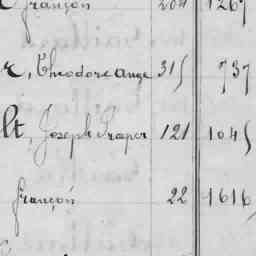 françois 204 1267
r, Théodore Ange 315 737
lt, Joseph Prosper 121 1045
françois 22 1616